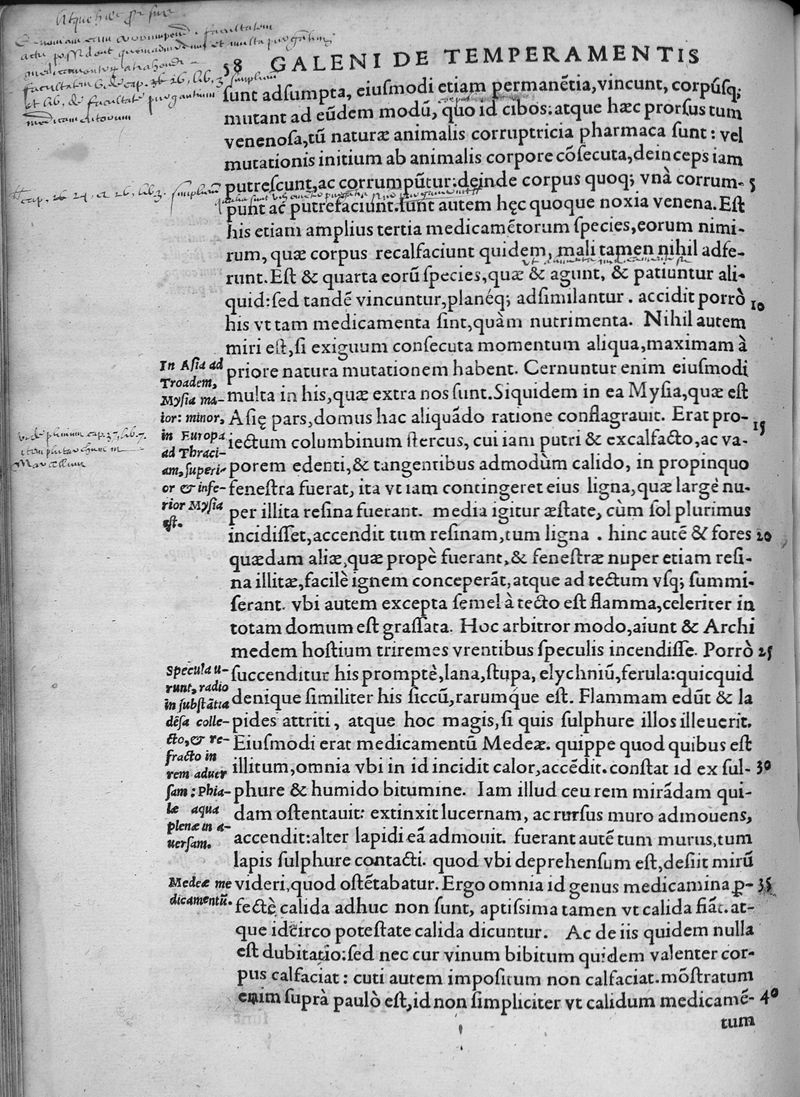 Atque hæc
58 GALENI DE TEMPERAMENTIS
ſunt adſumpta, eiuſmodi etiam permanẽtia, vincunt, corpúſq;
mutant ad eũdem modũ, quo id cibos: atque hæc prorſus tum
venenoſa, tũ naturæ animalis corruptricia pharmaca ſunt: vel
mutationis initium ab animalis corpore cõſecuta, deinceps iam
putreſcunt, ac corrumpũtur: deinde corpus quoq; vnà corrum- 5
punt ac putrefaciunt. ſunt autem hęc quoque noxia venena. Eſt
his etiam amplius tertia medicamẽtorum ſpecies, eorum nimi-
rum, quæ corpus recalfaciunt quidem, mali tamen nihil adfe-
runt. Eſt & quarta eorũ ſpecies, quæ & agunt, & patiuntur ali-
quid: ſed tandẽ vincuntur, planéq; adſimilantur. accidit porrò 10
his vt tam medicamenta ſint, quàm nutrimenta. Nihil autem
miri eſt, ſi exiguum conſecuta momentum aliqua, maximam à
priore natura mutationem habent. Cernuntur enim eiuſmodi
multa in his, quæ extra nos ſunt. Siquidem in ea Myſia, quæ eſt
Aſię pars, domus hac aliquãdo ratione conflagrauit. Erat pro- 15
iectum columbinum ſtercus, cui iam putri & excalfacto, ac va-
porem edenti, & tangentibus admodùm calido, in propinquo
feneſtra fuerat, ita vt iam contingeret eius ligna, quæ largè nu-
per illita reſina fuerant. media igitur æſtate, cùm ſol plurimus
incidiſſet, accendit tum reſinam, tum ligna. hinc autẽ & fores 20
quædam aliæ, quæ propè fuerant, & feneſtræ nuper etiam reſi-
na illitæ, facilè ignem conceperãt, atque ad tectum vſq; ſummi-
ſerant. vbi autem excepta ſemel à tecto eſt flamma, celeriter in
totam domum eſt graſſata. Hoc arbitror modo, aiunt & Archi
medem hoſtium triremes vrentibus ſpeculis incendiſſe. Porrò 25
ſuccenditur his promptè, lana, ſtupa, elychniũ, ferula: quicquid
denique ſimiliter his ſiccũ, rarumq́ue eſt. Flammam edũt & la
pides attriti, atque hoc magis, ſi quis ſulphure illos illeuerit.
Eiuſmodi erat medicamentũ Medeæ. quippe quod quibus eſt
illitum, omnia vbi in id incidit calor, accẽdit. conſtat id ex ſul- 30
phure & humido bitumine. Iam illud ceu rem mirãdam qui-
dam oſtentauit: extinxit lucernam, ac rurſus muro admouens,
accendit: alter lapidi eã admouit. fuerant autẽ tum murus, tum
lapis ſulphure contacti. quod vbi deprehenſum eſt, deſiit mirũ
videri, quod oſtẽtabatur. Ergo omnia id genus medicamina ꝑ- 35
fectè calida adhuc non ſunt, aptiſsima tamen vt calida fiãt. at-
que idcirco poteſtate calida dicuntur. Ac de iis quidem nulla
eſt dubitatio: ſed nec cur vinum bibitum quidem valenter cor-
pus calfaciat: cuti autem impoſitum non calfaciat. mõſtratum
enim ſuprà paulò eſt, id non ſimpliciter vt calidum medicamẽ- 40
tum
In Aſia ad
Troadem,
Myſia ma-
ior: minor,
in Europa
ad Thraci-
am, ſuperi-
or & infe-
rior Myſia
eſt.
Specula u-
runt, radio
in ſubſtãtia
dẽſa colle-
cto, & re-
fracto in
rem aduer
ſam: Phia-
læ aqua
plenæ in a-
uerſam.
Medeæ me
dicamentũ.